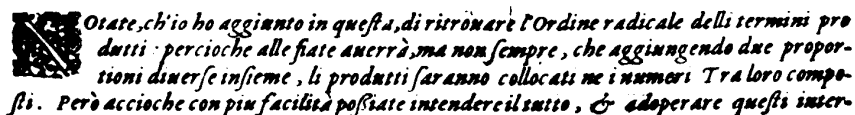 NOtate, ch'io ho aggiunto in questa, di ritrouare l'Ordine radicale delli termini pro
dutti · percioche alle fiate auerrà, ma non sempre, che aggiungendo due propor-
tioni diuerse insieme, li produtti saranno collocati ne i numeri Tra loro compo-
sti. Però accioche con piu facilità poßiate intendere il tutto, & adoperare questi inter-